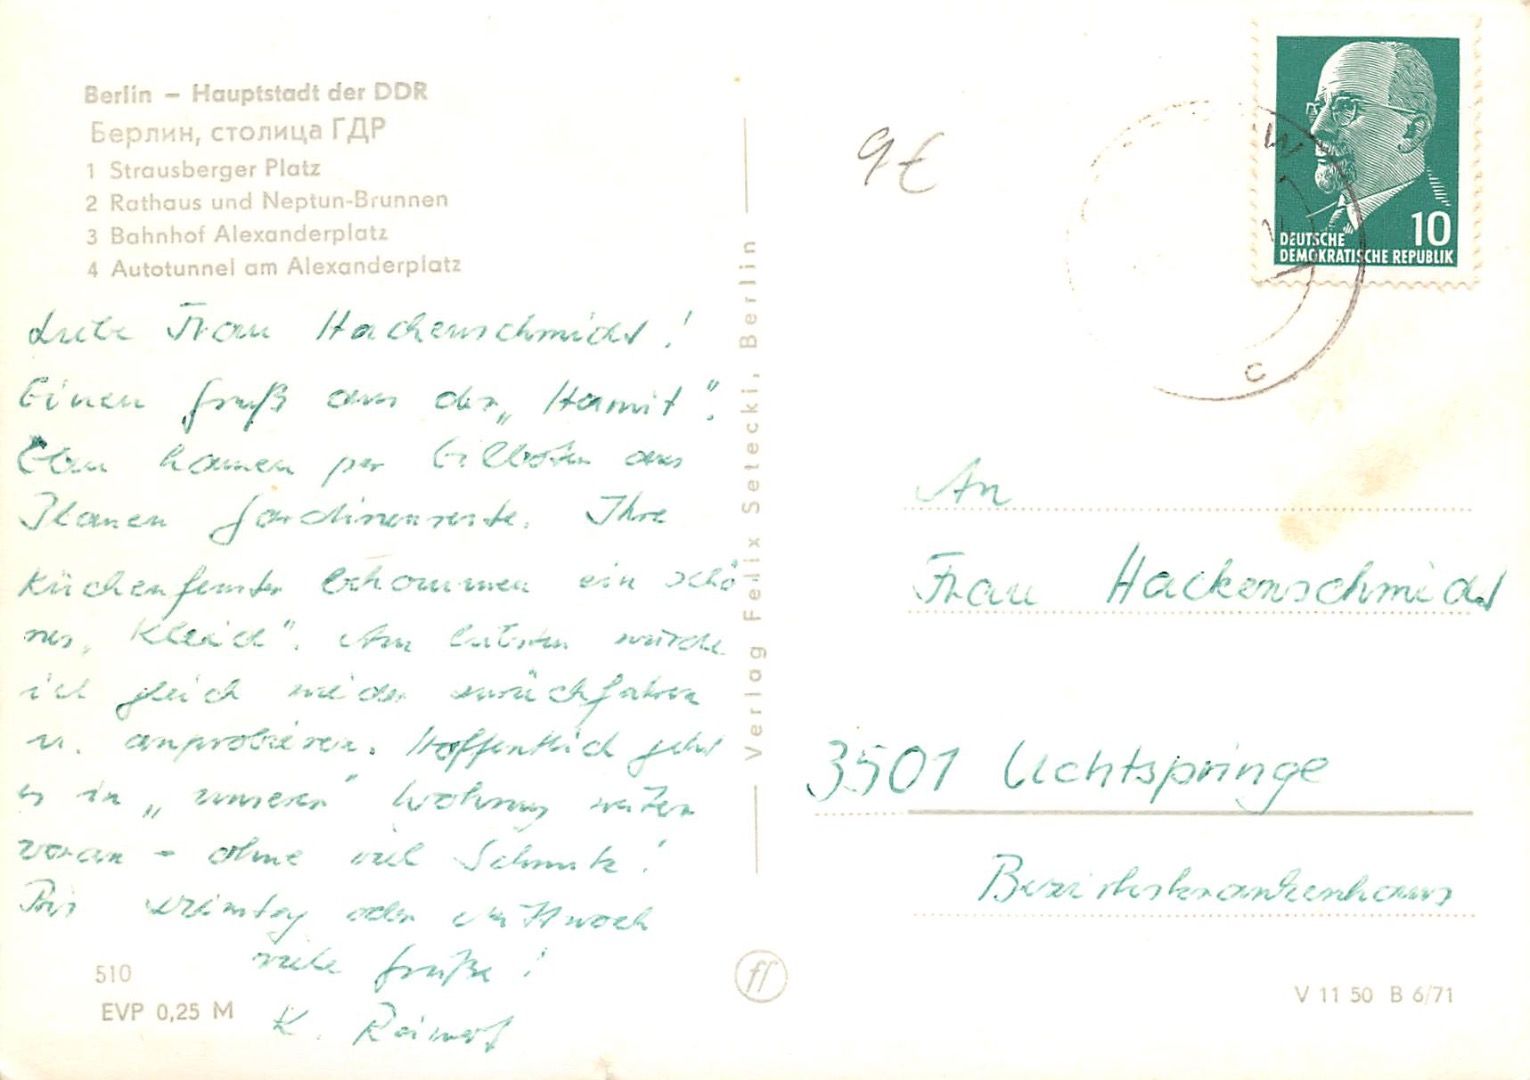 Berlin – Hauptstadt der DDR
Берлин, столица ГДР
1 Strausberger Platz
2 Rathaus und Neptun-Brunnen
3 Bahnhof Alexanderplatz
4 Autotunnel am Alexanderplatz
Liebe Frau Hackenschmidt!
Einen Gruß aus der „Hamit".
Eben kamen per Eilboten aus
Plauen Gardinenreste. Ihre
Küchenfenster bekommen ein schö
nes „Kleid". Am liebsten würde
ich gleich wieder zurückfahren
u. anprobieren. Hoffentlich geht
es in „unserer" Wohnung weiter
voran – ohne viel Schmutz!
Bis Dienstag oder Mittwoch
viele Grüße!
K. Reimert
510
EVP 0,25 M
Verlag Felix Setecki, Berlin
ff
9€
DEUTSCHE
DEMOKRATISCHE REPUBLIK
10
An
Frau Hackenschmidt
3501 Uchtspringe
Bezirkskrankenhaus
V 11 50 B 6/71